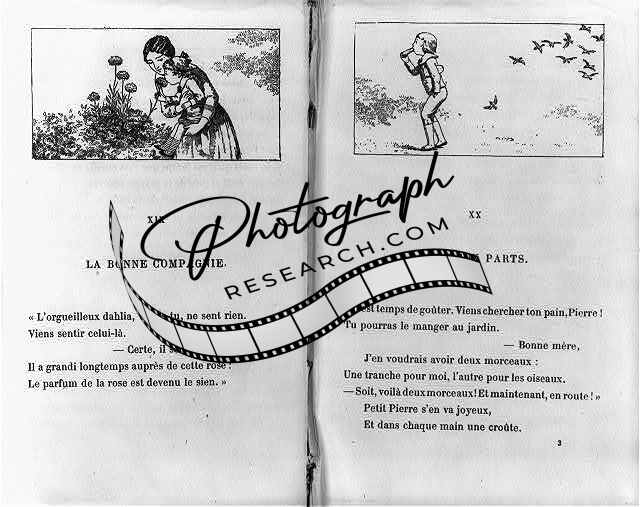 XIX
LA BONNE COMPAGNIE.
« L'orgueilleux dahlia, tu, ne sent rien.
Viens sentir celui-là.
— Certe, il
Il a grandi longtemps auprès de cette rose :
Le parfum de la rose est devenu le sien. »
XX
PARTS.
est temps de goûter. Viens chercher ton pain, Pierre !
Tu pourras le manger au jardin.
— Bonne mère,
J'en voudrais avoir deux morceaux :
Une tranche pour moi, l'autre pour les oiseaux.
— Soit, voilà deux morceaux! Et maintenant, en route ! »
Petit Pierre s'en va joyeux,
Et dans chaque main une croûte.
3
Photograph
RESEARCH.COM